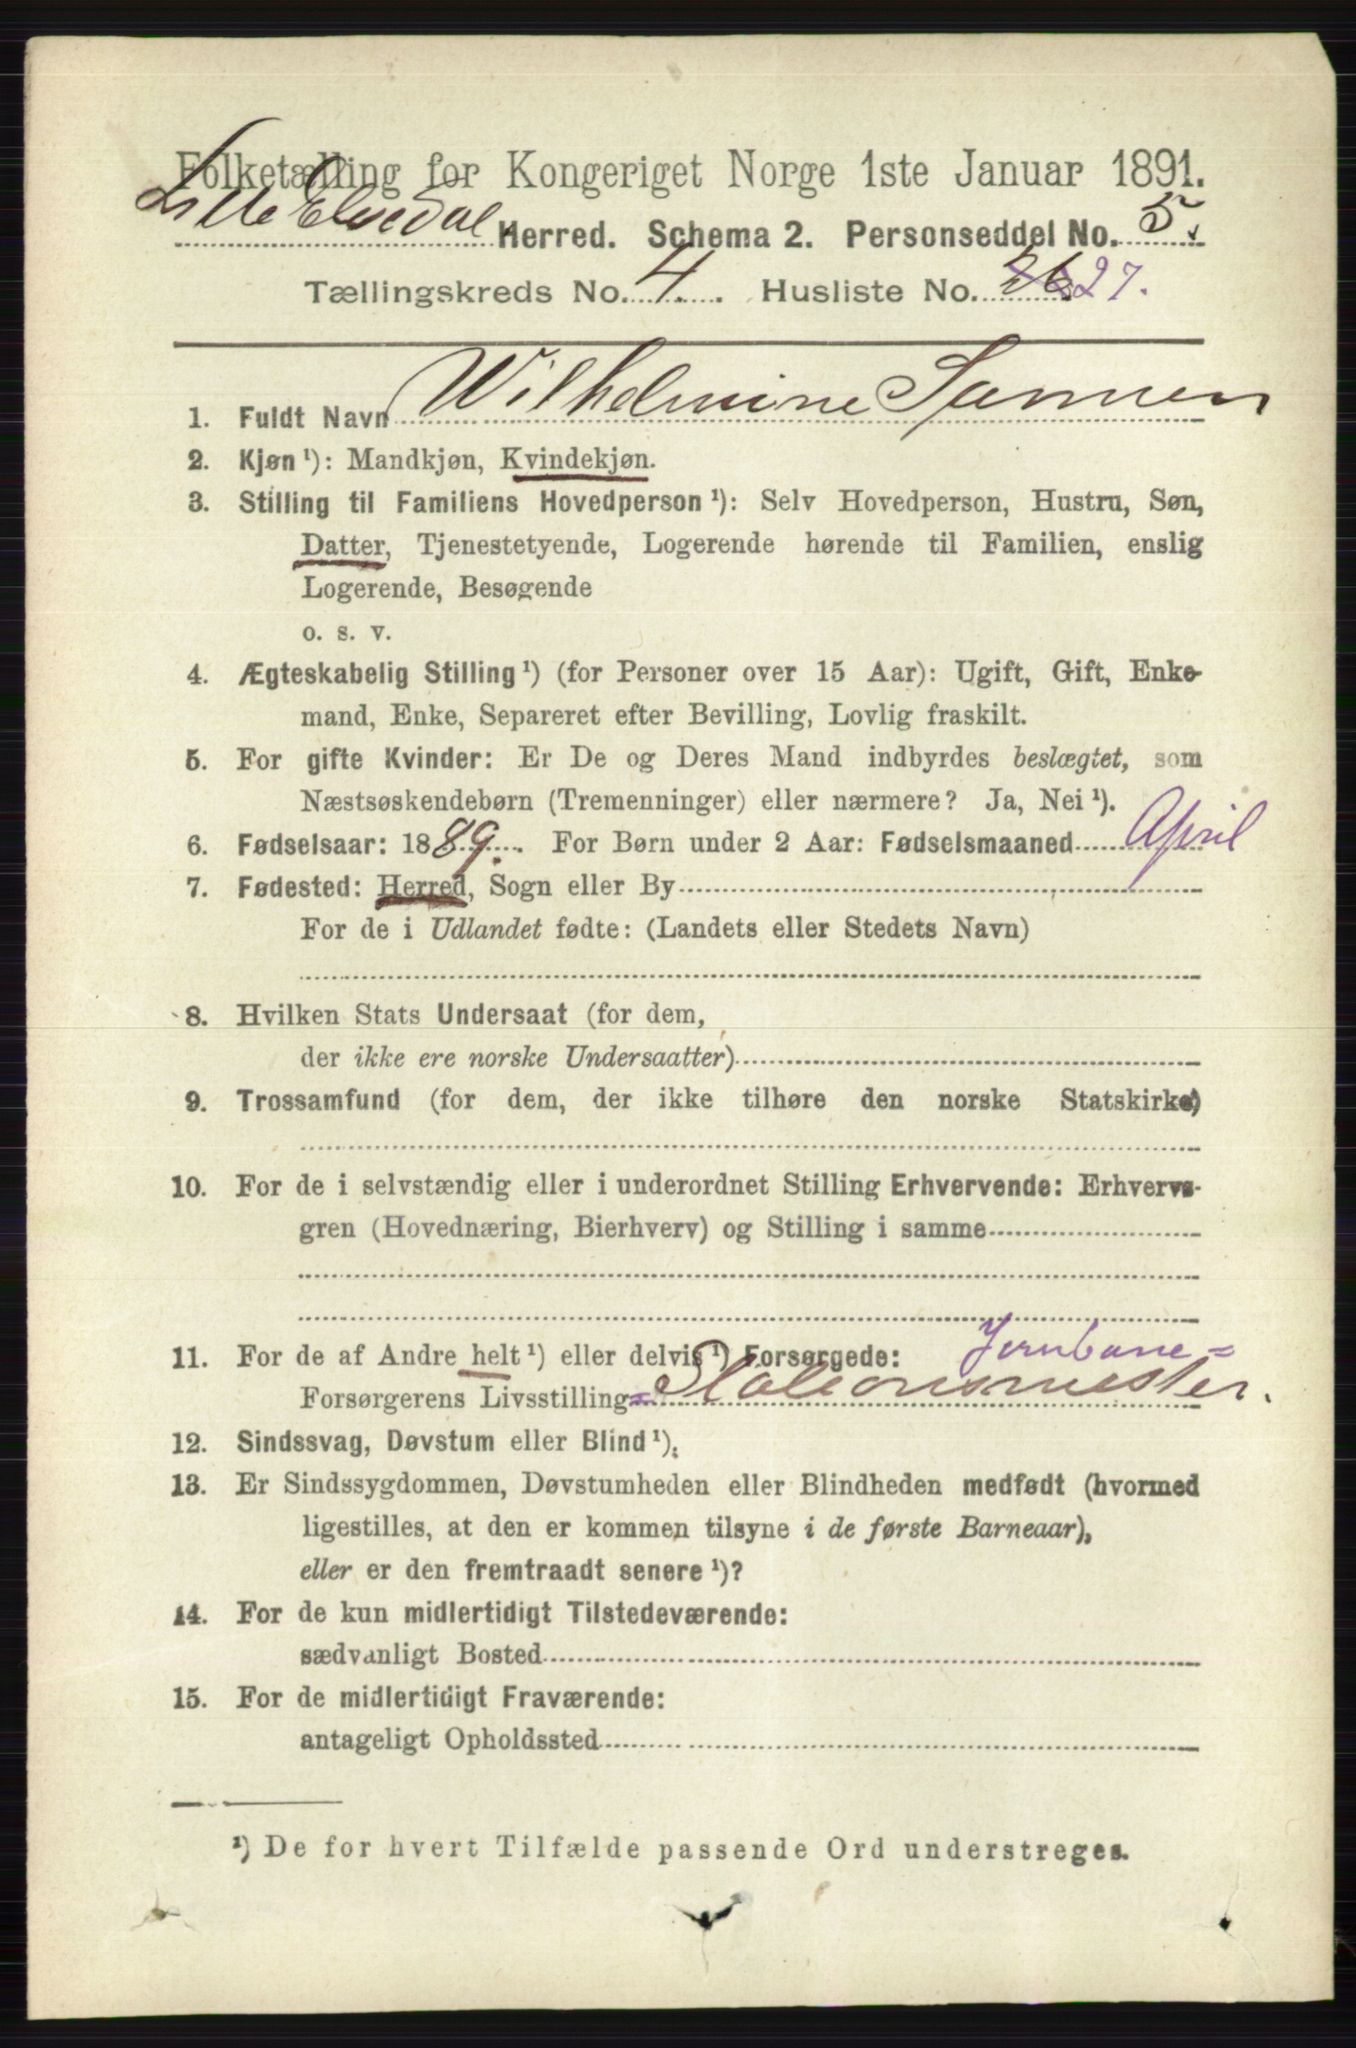 Folketælling for Kongeriget Norge 1ste Januar 1891.
Lille Elvedal Herred. Schema 2. Personseddel No. 5.
Tællingskreds No. 4. Husliste No. 26 27.
1. Fuldt Navn Wilhelmine
2. Kjøn ¹): Mandkjøn, Kvindekjøn.
3. Stilling til Familiens Hovedperson ¹): Selv Hovedperson, Hustru, Søn,
Datter, Tjenestetyende, Logerende hørende til Familien, enslig
Logerende, Besøgende
o. s. v.
4. Ægteskabelig Stilling ¹) (for Personer over 15 Aar): Ugift, Gift, Enke-
mand, Enke, Separeret efter Bevilling, Lovlig fraskilt.
5. For gifte Kvinder: Er De og Deres Mand indbyrdes beslægtet, som
Næstsøskendebørn (Tremenninger) eller nærmere? Ja, Nei ¹).
6. Fødselsaar: 1889. For Børn under 2 Aar: Fødselsmaaned April
7. Fødested: Herred, Sogn eller By
For de i Udlandet fødte: (Landets eller Stedets Navn)
8. Hvilken Stats Undersaat (for dem,
der ikke ere norske Undersaatter)
9. Trossamfund (for dem, der ikke tilhøre den norske Statskirke)
10. For de i selvstændig eller i underordnet Stilling Erhvervende: Erhvervs-
gren (Hovednæring, Bierhverv) og Stilling i samme
11. For de af Andre helt ¹) eller delvis ¹) Forsørgede: Jernbane=
Forsørgerens Livsstilling Stationsmester.
12. Sindssvag, Døvstum eller Blind ¹).
13. Er Sindssygdommen, Døvstumheden eller Blindheden medfødt (hvormed
ligestilles, at den er kommen tilsyne i de første Barneaar),
eller er den fremtraadt senere ¹)?
14. For de kun midlertidigt Tilstedeværende:
sædvanligt Bosted
15. For de midlertidigt Fraværende:
antageligt Opholdssted
¹) De for hvert Tilfælde passende Ord understreges.